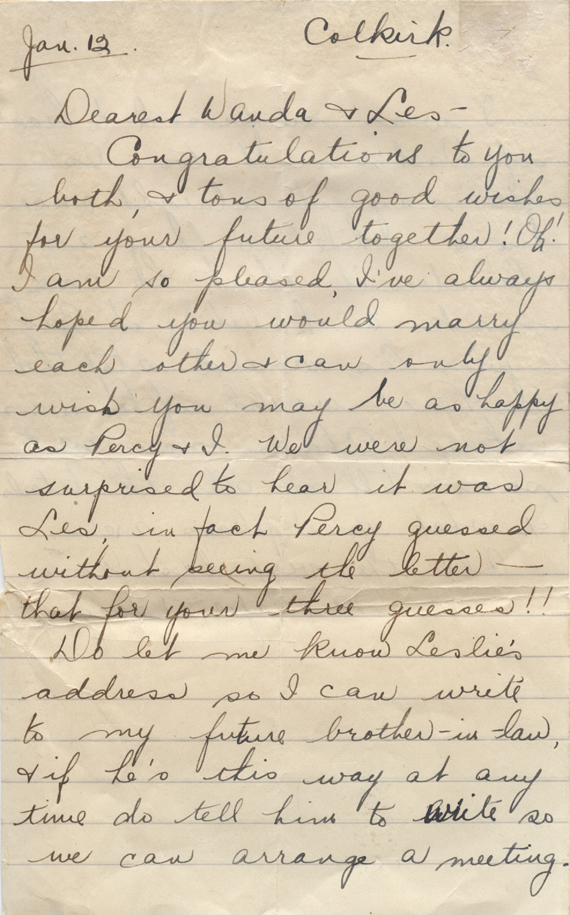 Jan. 12.
Colkirk.
Dearest Wanda & Les-
Congratulations to you
both, & tons of good wishes
for your future together! Oh!
I am so pleased, I've always
hoped you would marry
each other & can only
wish you may be as happy
as Percy & I. We were not
surprised to hear it was
Les, in fact Percy guessed
without seeing the letter —
that for your three guesses!!
Do let me know Leslie's
address so I can write
to my future brother-in-law,
& if he's this way at any
time do tell him to write so
we can arrange a meeting.